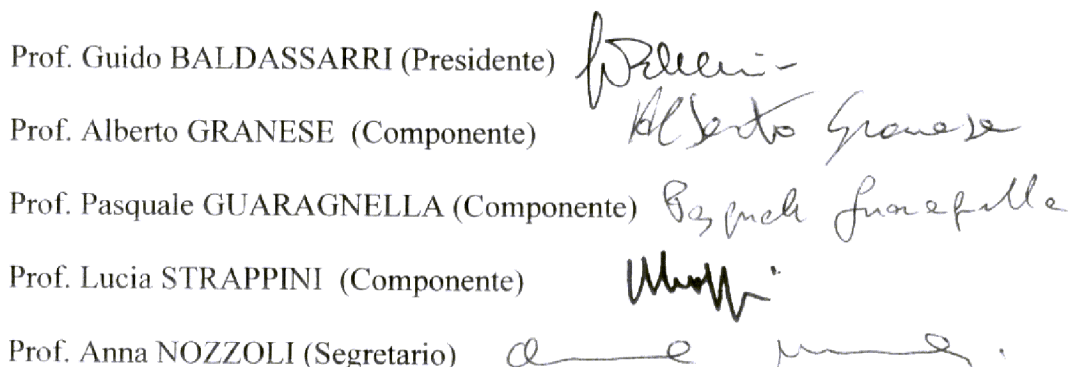 Prof. Guido BALDASSARRI (Presidente)
Prof. Alberto GRANESE (Componente) Alberto Granese
Prof. Pasquale GUARAGNELLA (Componente) Pasquale Guaragnella
Prof. Lucia STRAPPINI (Componente)
Prof. Anna NOZZOLI (Segretario)